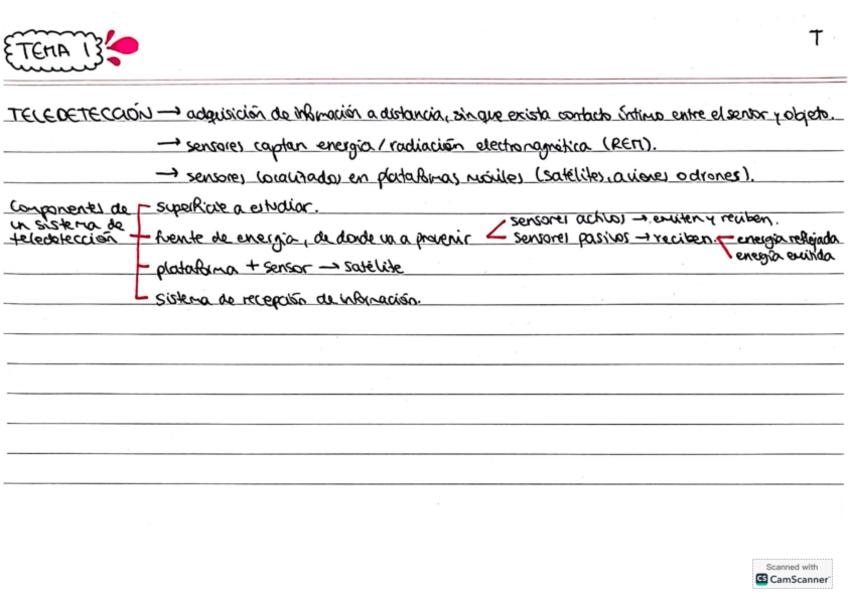 TEMA 1
T
TELEDETECCIÓN → adquisición de información a distancia, sin que exista contacto íntimo entre el sensor y objeto.
→ sensores captan energía / radiación electromagnética (REM).
→ sensores localizados en plataformas móviles (satélites, aviones o drones).
Componentes de un sistema de teledetección
superficie a estudiar.
fuente de energía, de donde va a provenir
sensores activos → emiten y reciben.
sensores pasivos → reciben.
energía reflejada
energía emitida
plataforma + sensor → satélite
sistema de recepción de información.
Scanned with
CS CamScanner